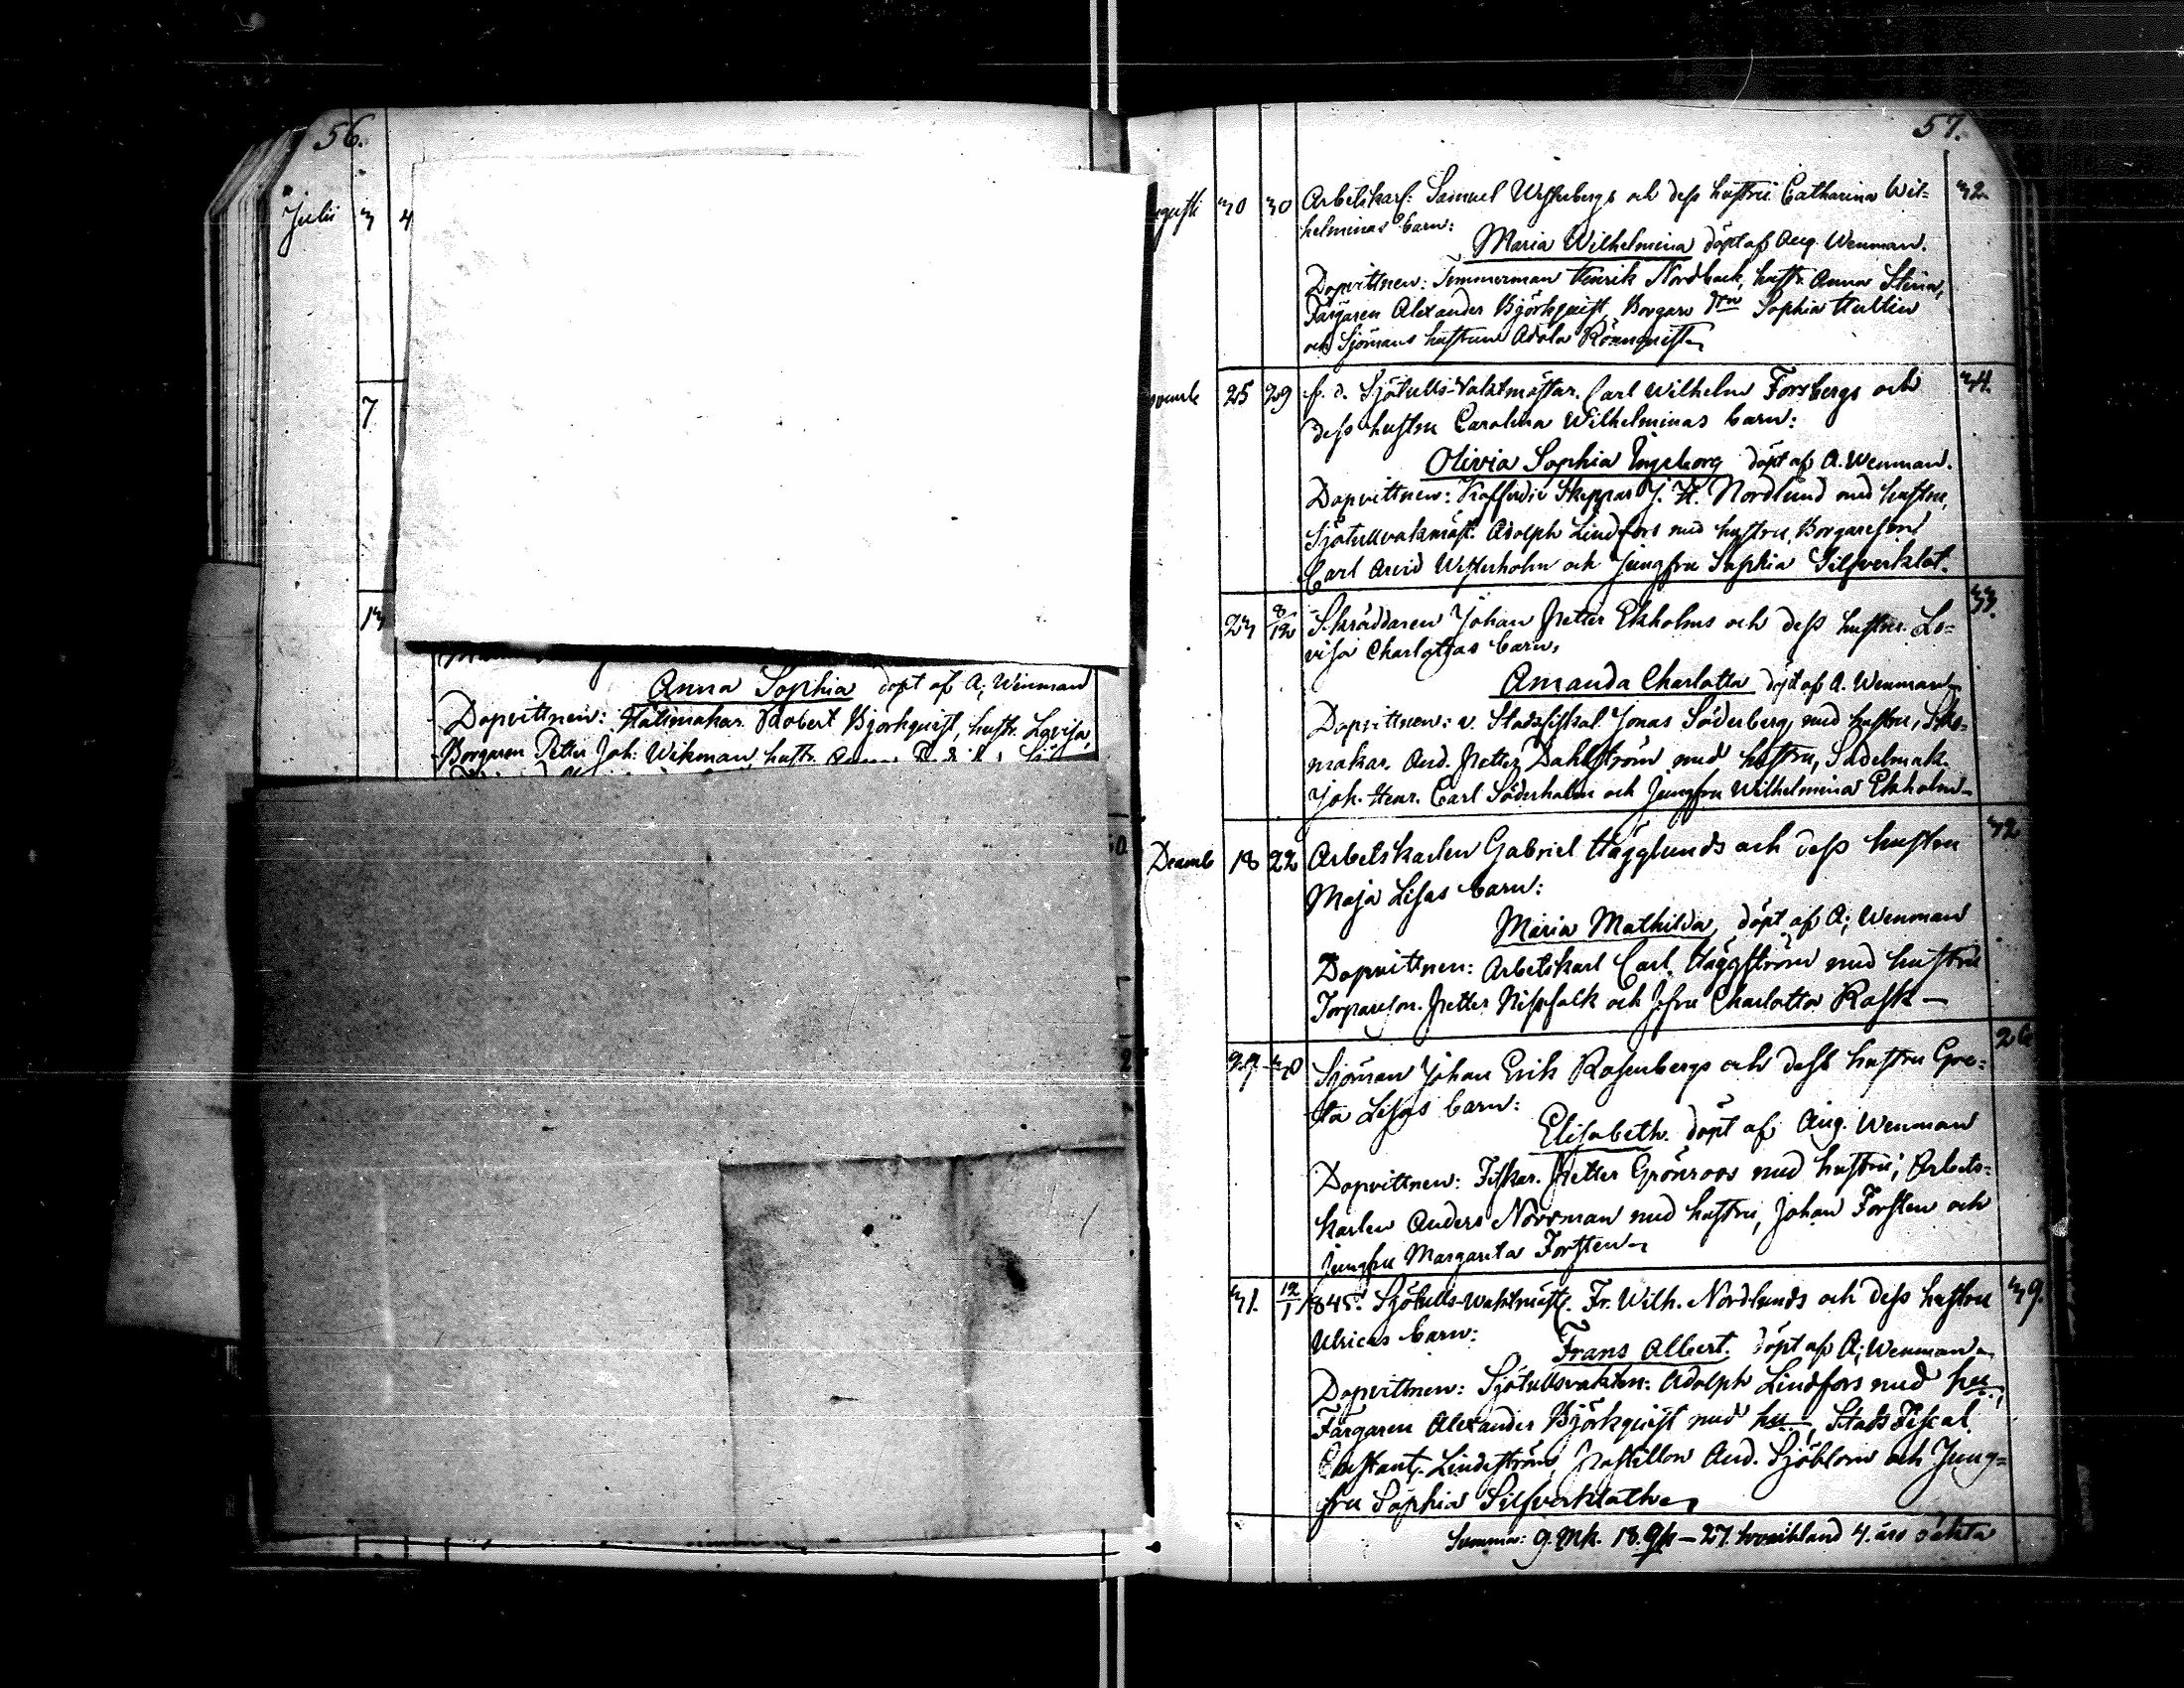 56.
Julii 3 4
7
13
Anna Sophia döpt af A; Wenman
Dopvittnen: Hattmakar. Robert Björkquist, hustr. Lovisa,
Borgaren Petter Joh: Wikman, hustr.
57.
30 30 Arbetskarl: Samuel Westerbergs och dess hustru Catharina Wil= 32
helminas barn:
Maria Wilhelmina döpt af Aug. Wenman.
Dopvittnen: Timmerman Henrik Nordback, hustr. Anna Stina,
Färgaren Alexander Björkquist, Borgare Sophia Hultin
och Sjömans hustrun Adola Rönnquist
25 29 f. d. Sjötulls-Vaktmästar. Carl Wilhelm Forsbergs och 34.
dess hustru Carolina Wilhelminas barn:
Olivia Sophia Ingeborg döpt af A. Wenman.
Dopvittnen: Kofferdie Skeppar J. H. Nordlund med hustru,
Sjötullvaktmäst. Adolph Lindfors med hustru, Borgareson
Carl Arvid Westerholm och Jungfru Sophia Silfverklot.
23 8/12 Skräddaren Johan Petter Ekholms och dess hustru Lo= 33.
visa Charlottas barn,
Amanda Charlotta döpt af A. Wenman
Dopvittnen: v. Stadsfiskal Jonas Söderberg med hustru, Sko=
makar. And. Petter Dahlström med hustru, Sadelmak.
Joh. Henr. Carl Söderholm och Jungfru Wilhelmina Ekholm
Decemb 18 22 Arbetskarlen Gabriel Hägglunds och dess hustru 32
Maja Lisas barn:
Maria Mathilda, döpt af A; Wenman
Dopvittnen: Arbetskarl Carl Häggström med hustru
Torpareson. Petter Nissfolk och Jfru Charlotta Rask —
27 30 Sjöman Johan Erik Rosenbergs och dess hustru Gre= 26
ta Lisas barn:
Elisabeth. döpt af Aug. Wenman
Dopvittnen: Fiskar. Petter Grönroos med hustru, Arbets=
karlen Anders Norrman med hustru, Johan Forsten och
Jungfru Margareta Forsten
31. 12/1 1845. Sjötulls-waktmäst. Fr. Wilh. Nordlunds och dess hustru 39.
Ulricas barn:
Frans Albert. döpt af A; Wenman
Dopvittnen: Sjötullsvaktm: Adolph Lindfors med hu,
Färgaren Alexander Björkquist med hu, Stads Fiscal
Constant. Lindström, Postillon And. Sjöblom och Jung=
fru Sophia Silfverkloth
Summa: 9. Mk. 18. Qk — 27. hvaribland 4. äro oäkta